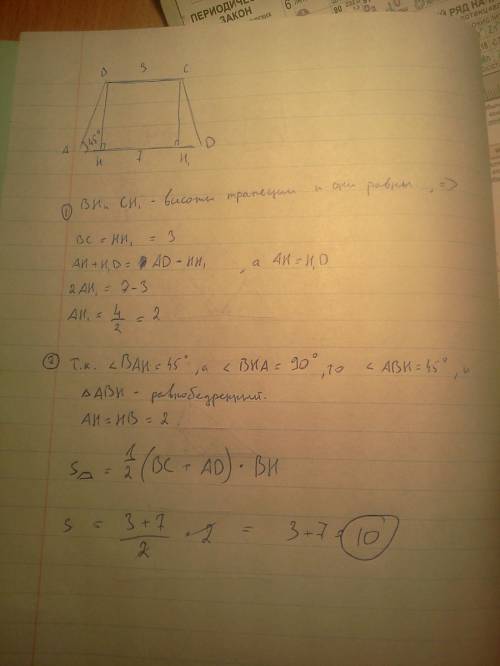 ПЕРИОДИЧЕС
ЗАКОН
РЯД НА
B 3 C
A 45° H 7 H₁ D
① BH и CH₁ - высоты трапеции и они равны, =>
BC = HH₁ = 3
AH + H₁D = AD - HH₁, а AH = H₁D
2AH₁ = 7-3
AH₁ = 4/2 = 2
② Т.к. <BAH = 45°, а <BHA = 90°, то <ABH = 45°, и
△ABH - равнобедренный.
AH = HB = 2
S = 1/2 (BC + AD) · BH
S = 3+7/2 · 2 = 3+7 = 10